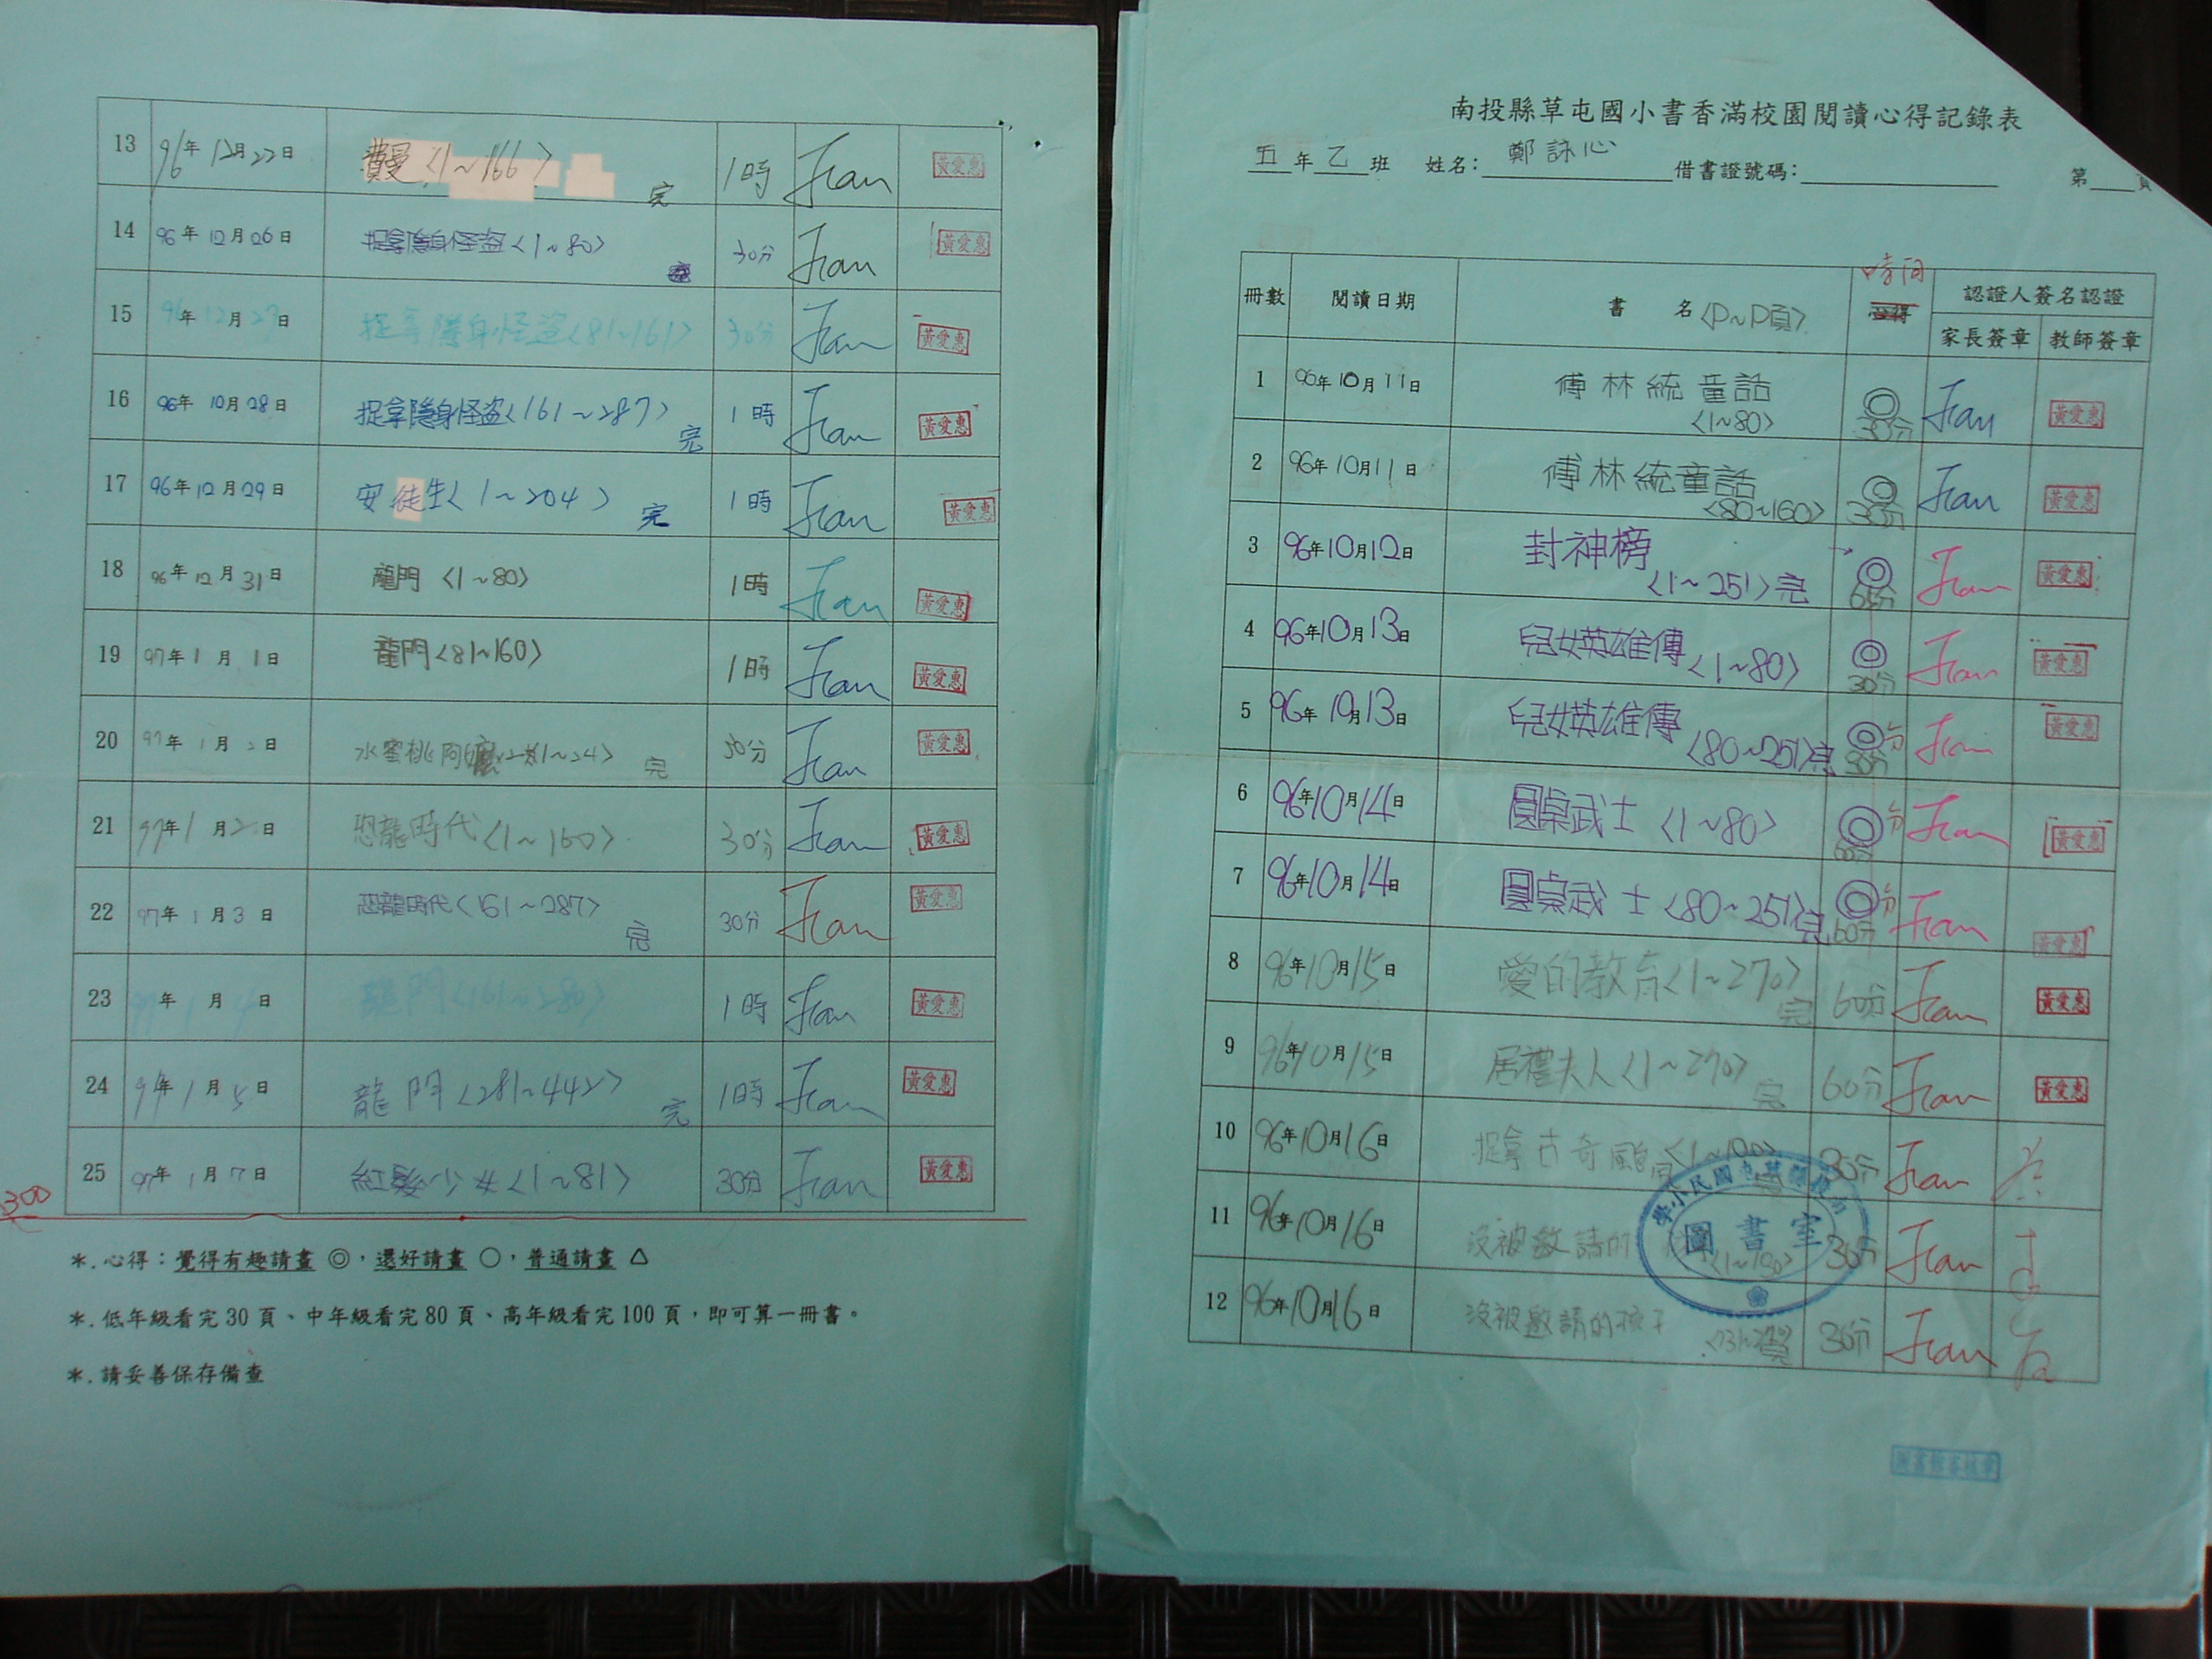 13 96年12月22日 費曼<1~166> 完 1時 Jean 黃愛惠
14 96年12月26日 捉拿隱身怪盜<1~80> 30分 Jean 黃愛惠
15 96年12月27日 捉拿隱身怪盜<81~161> 30分 Jean 黃愛惠
16 96年10月28日 捉拿隱身怪盜<161~287> 完 1時 Jean 黃愛惠
17 96年12月29日 安徒生<1~204> 完 1時 Jean 黃愛惠
18 96年12月31日 龍門<1~80> 1時 Jean 黃愛惠
19 97年1月1日 龍門<81~160> 1時 Jean 黃愛惠
20 97年1月2日 水蜜桃阿嬤 完 30分 Jean 黃愛惠
21 97年1月2日 恐龍時代<1~160> 30分 Jean 黃愛惠
22 97年1月3日 恐龍時代<161~287> 完 30分 Jean 黃愛惠
23 97年1月4日 龍門<161~280> 1時 Jean 黃愛惠
24 97年1月5日 龍門<281~442> 完 1時 Jean 黃愛惠
25 97年1月7日 紅髮少女<1~81> 30分 Jean 黃愛惠
300
*.心得：覺得有趣請畫 ◎，還好請畫 ○，普通請畫 △
*.低年級看完30頁、中年級看完80頁、高年級看完100頁，即可算一冊書。
*.請妥善保存備查
南投縣草屯國小書香滿校園閱讀心得記錄表
五年乙班 姓名：鄭詠心 借書證號碼： 第 頁
冊數 閱讀日期 書名<P~P頁> 時間 心得 認證人簽名認證
家長簽章 教師簽章
1 96年10月11日 傅林統童話 <1~80> ◎ 30分 Jean 黃愛惠
2 96年10月11日 傅林統童話 <80~160> ◎ 30分 Jean 黃愛惠
3 96年10月12日 封神榜 <1~251>完 ◎ Jean 黃愛惠
4 96年10月13日 兒女英雄傳 <1~80> ◎ 30分 Jean 黃愛惠
5 96年10月13日 兒女英雄傳 <80~251>完 ◎ Jean 黃愛惠
6 96年10月14日 圓桌武士 <1~80> ◎ Jean 黃愛惠
7 96年10月14日 圓桌武士 <80~251>完 ◎ 60分 Jean 黃愛惠
8 96年10月15日 愛的教育<1~270> 完 60分 Jean 黃愛惠
9 96年10月15日 居禮夫人<1~270> 完 60分 Jean 黃愛惠
10 96年10月16日 捉拿古奇颱 <1~100> 30分 Jean
11 96年10月16日 沒被邀請的 30分 Jean
12 96年10月16日 沒被邀請的孩子 30分 Jean
圖書室